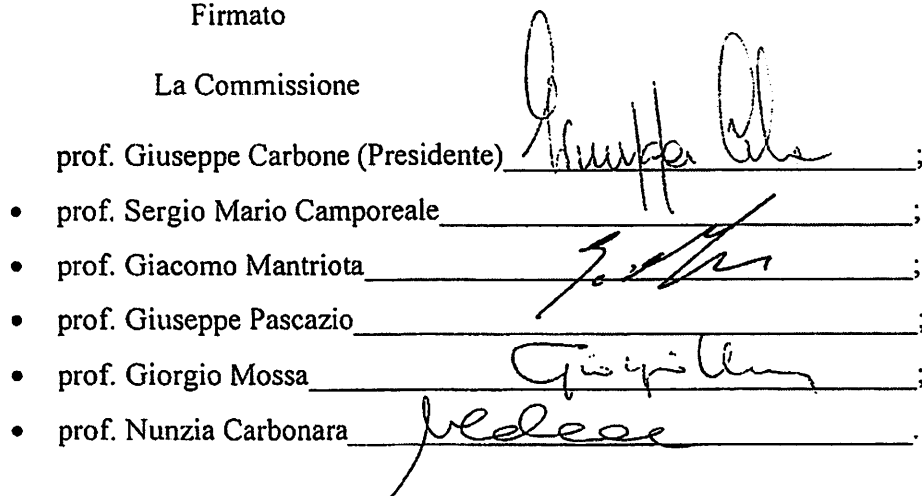 Firmato
La Commissione
prof. Giuseppe Carbone (Presidente) ;
• prof. Sergio Mario Camporeale ;
• prof. Giacomo Mantriota ;
• prof. Giuseppe Pascazio ;
• prof. Giorgio Mossa ;
• prof. Nunzia Carbonara .